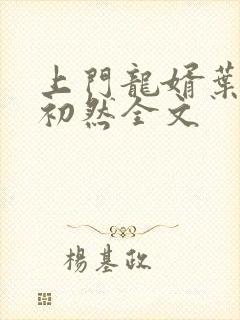 上門龍婿葉
初然全文
楊基政